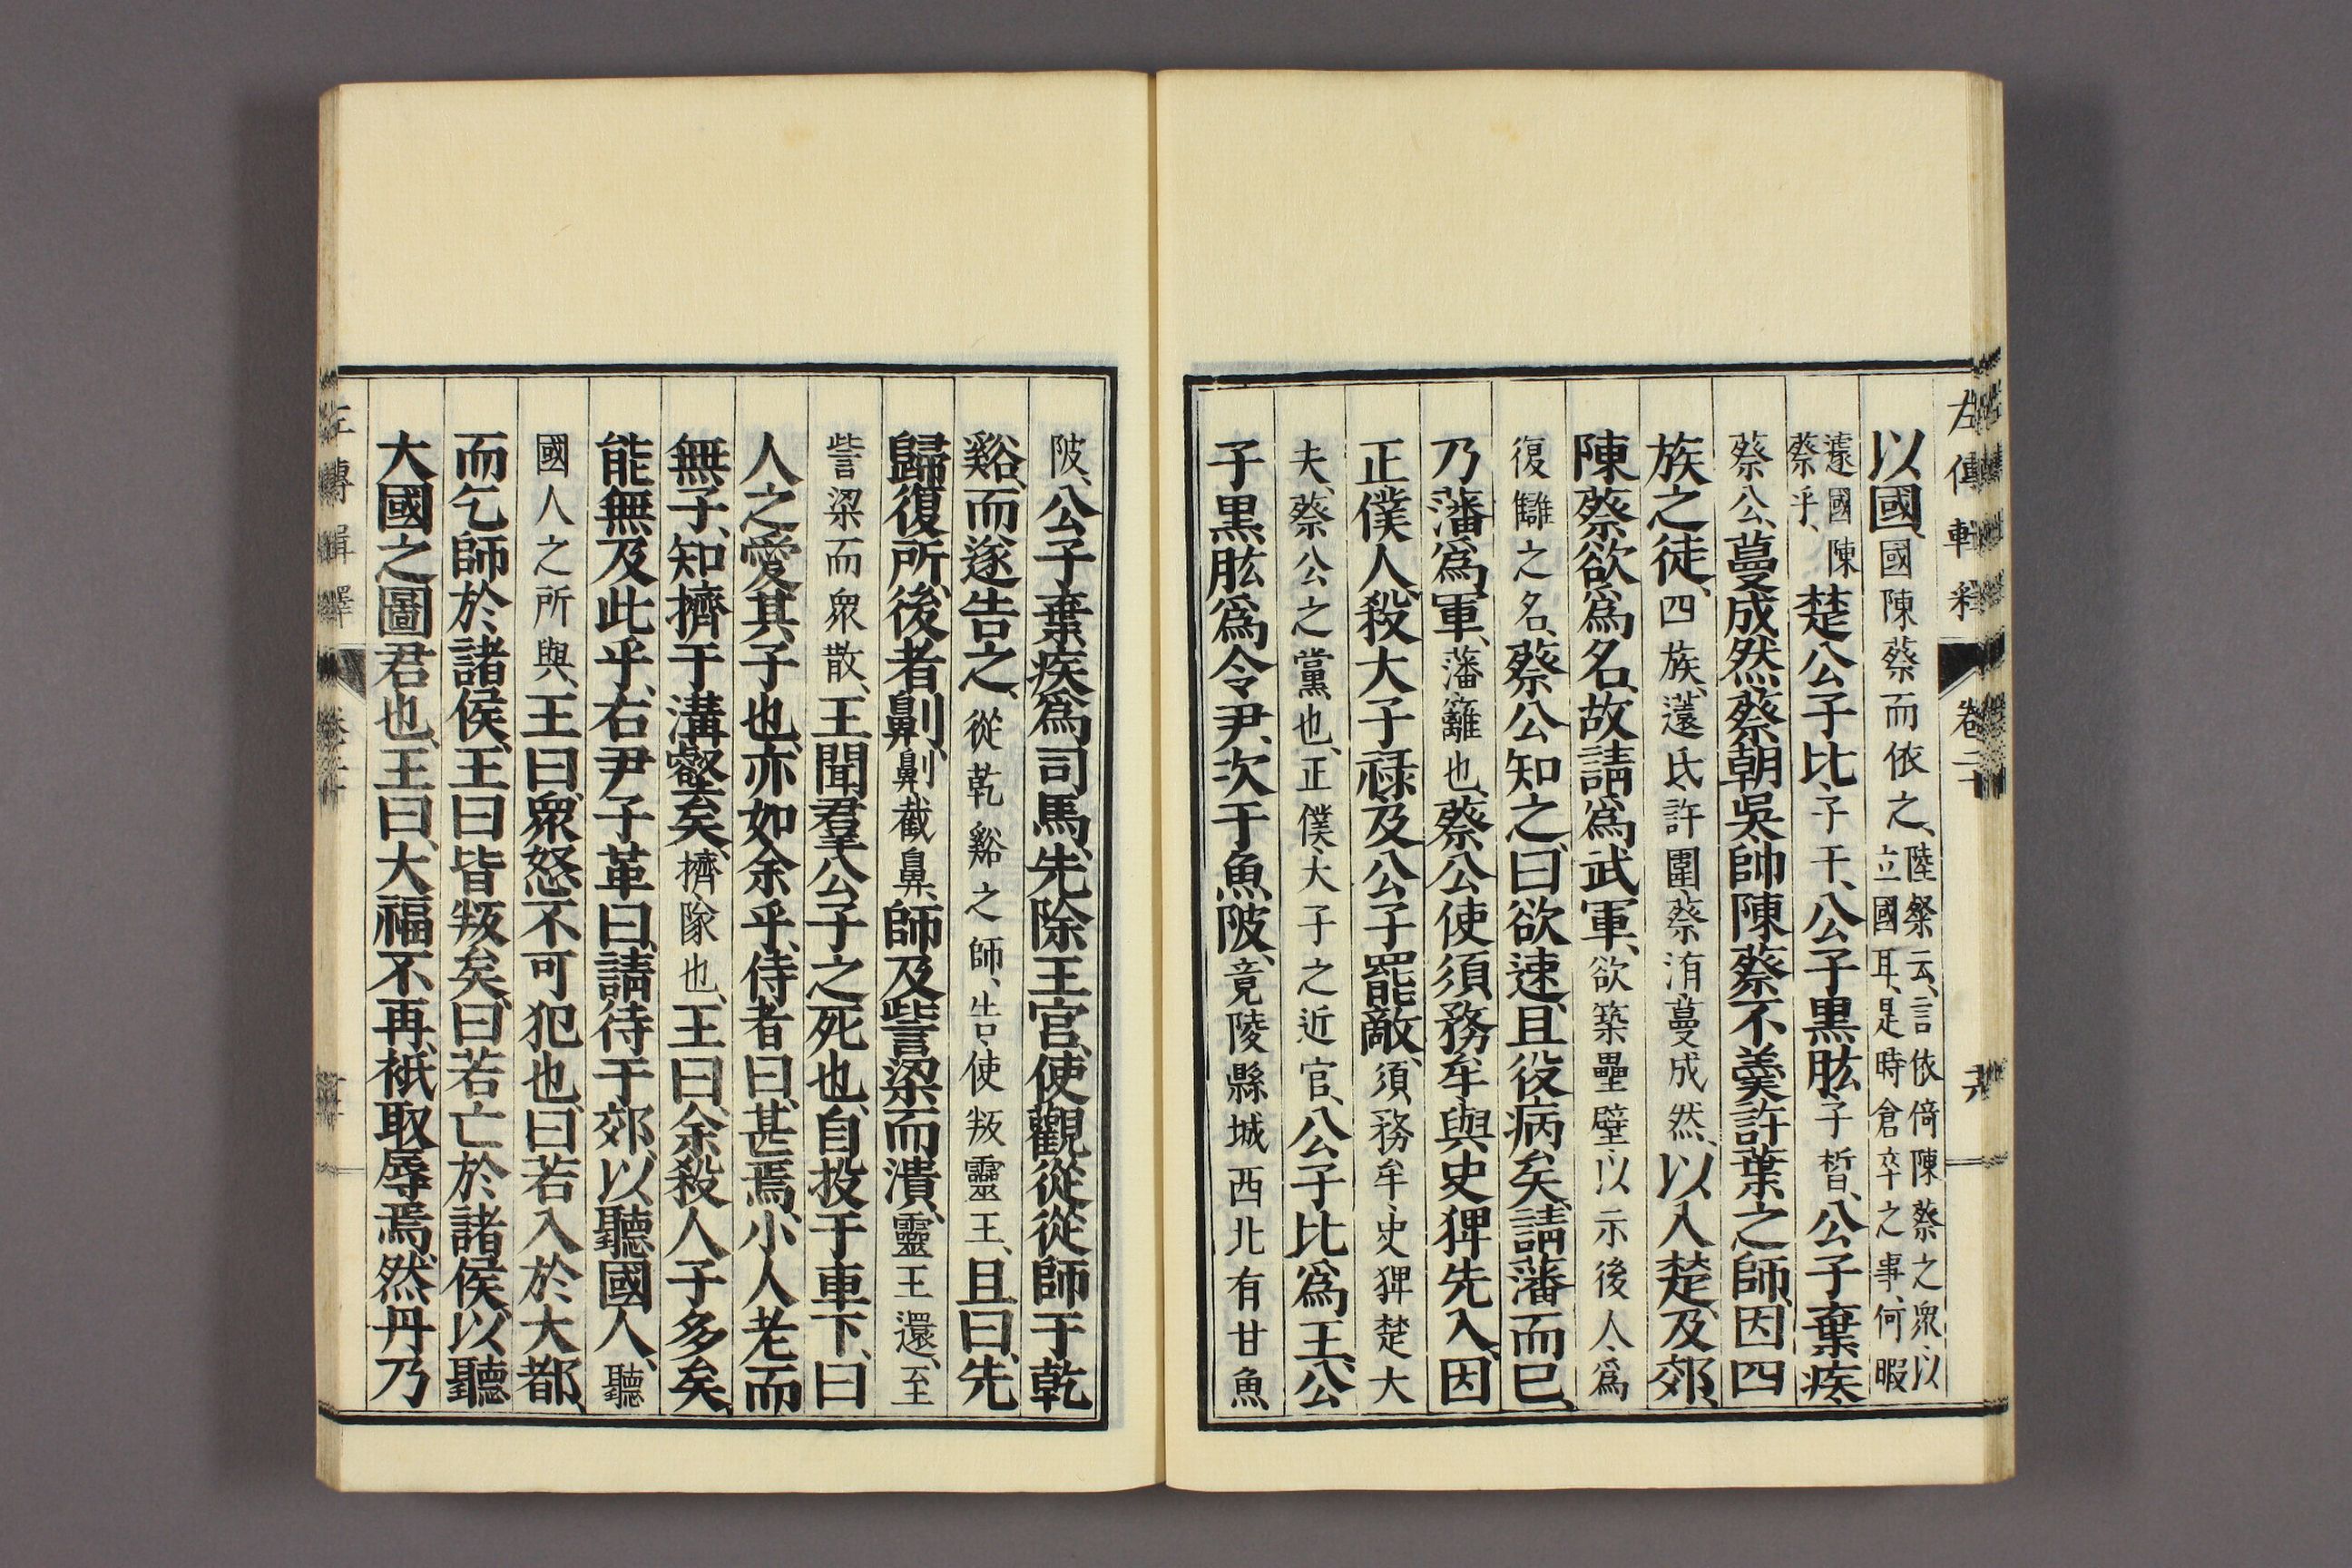 左傳輯釋 卷二十
以國、國陳蔡而依之、陸粲云、言依倚陳蔡之衆、以立國耳、是時倉卒之事、何暇
遠國陳蔡乎、楚公子比、子干、公子黑肱、子晳、公子棄疾、
蔡公、蔓成然、蔡朝吳、帥陳蔡不羹許葉之師、因四
族之徒、四族、薳氏、許圍、蔡洧、蔓成然、以入楚、及郊、
陳蔡欲爲名、故請爲武軍、欲築壘壁、以示後人、爲
復讎之名、蔡公知之、曰、欲速、且役病矣、請藩而已、
乃藩爲軍、藩籬也、蔡公使須務牟與史猈先入、因
正僕人、殺大子祿及公子罷敵、須務牟、史猈楚大
夫、蔡公之黨也、正僕、大子之近官、公子比爲王、公
子黑肱爲令尹、次于魚陂、竟陵縣城西北有甘魚
陂、公子棄疾爲司馬、先除王官、使觀從從師于乾
谿、而遂告之、從乾谿之師、告使叛靈王、且曰、先
歸復所、後者劓、劓截鼻、師及訾梁而潰、靈王還、至
訾梁而衆散、王聞羣公子之死也、自投于車下、曰、
人之愛其子也、亦如余乎、侍者曰、甚焉、小人老而
無子、知擠于溝壑矣、擠隊也、王曰、余殺人子多矣、
能無及此乎、右尹子革曰、請待于郊、以聽國人、聽
國人之所與、王曰、衆怒不可犯也、曰、若入於大都、
而乞師於諸侯、王曰、皆叛矣、曰、若亡於諸侯、以聽
大國之圖君也、王曰、大福不再、祗取辱焉、然丹乃